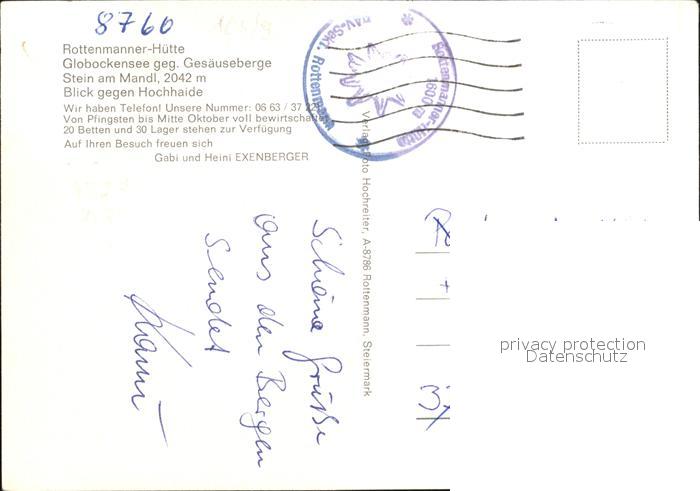 8760
Rottenmanner-Hütte
Globockensee geg. Gesäuseberge
Stein am Mandl, 2042 m
Blick gegen Hochhaide
Wir haben Telefon! Unsere Nummer: 06 63 / 37 22
Von Pfingsten bis Mitte Oktober voll bewirtschaftet
20 Betten und 30 Lager stehen zur Verfügung
Auf Ihren Besuch freuen sich
Gabi und Heini EXENBERGER
Rottenmanner-Hütte
1600 m
ÖAV-Sekt. Rottenmann
Verlag Foto Hochreiter, A-8786 Rottenmann, Steiermark
Schöne Grüße
aus den Bergen
sendet
privacy protection
Datenschutz